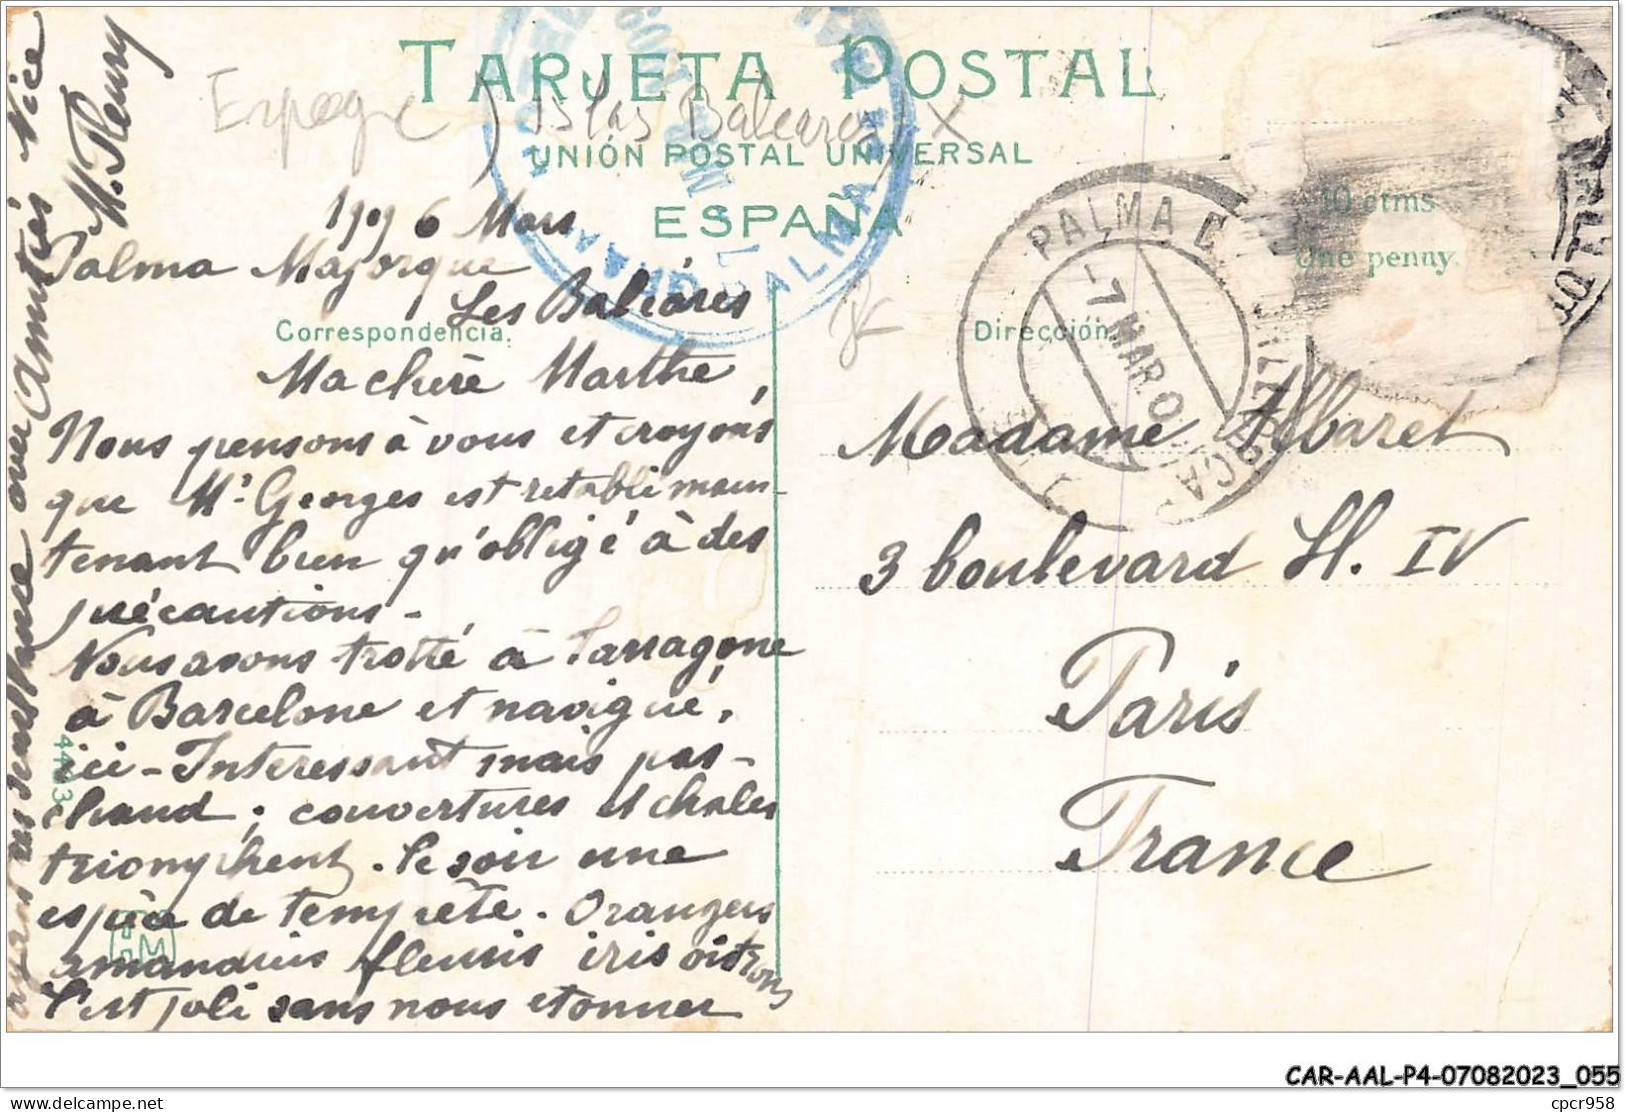 TARJETA POSTAL
Espagne) Islas Baleares X
UNIÓN POSTAL UNIVERSAL
ESPAÑA
10 ctms
One penny.
PALMA
-7 MAR. 0
PALMA
1909 6 Mars
Palma Majorque
Les Baléares
Correspondencia.
Dirección
Ma chère Marthe,
Nous pensons à vous et croyons
que Mr Georges est rétabli main-
tenant bien qu'obligé à des
précautions -
Nous avons trotté à Tarragone
à Barcelone et navigué,
ici - Interessant mais pas
chaud ; couvertures et chales
triomphent. Ce soir une
espèce de tempête. Orangers
amandiers fleuris iris citrons
C'est joli sans nous etonner
Nice
Amitiés
M. Fleury
4483
Madame Albaret
3 boulevard H. IV
Paris
France
CAR-AAL-P4-07082023_055
delcampe.net
cpcr958